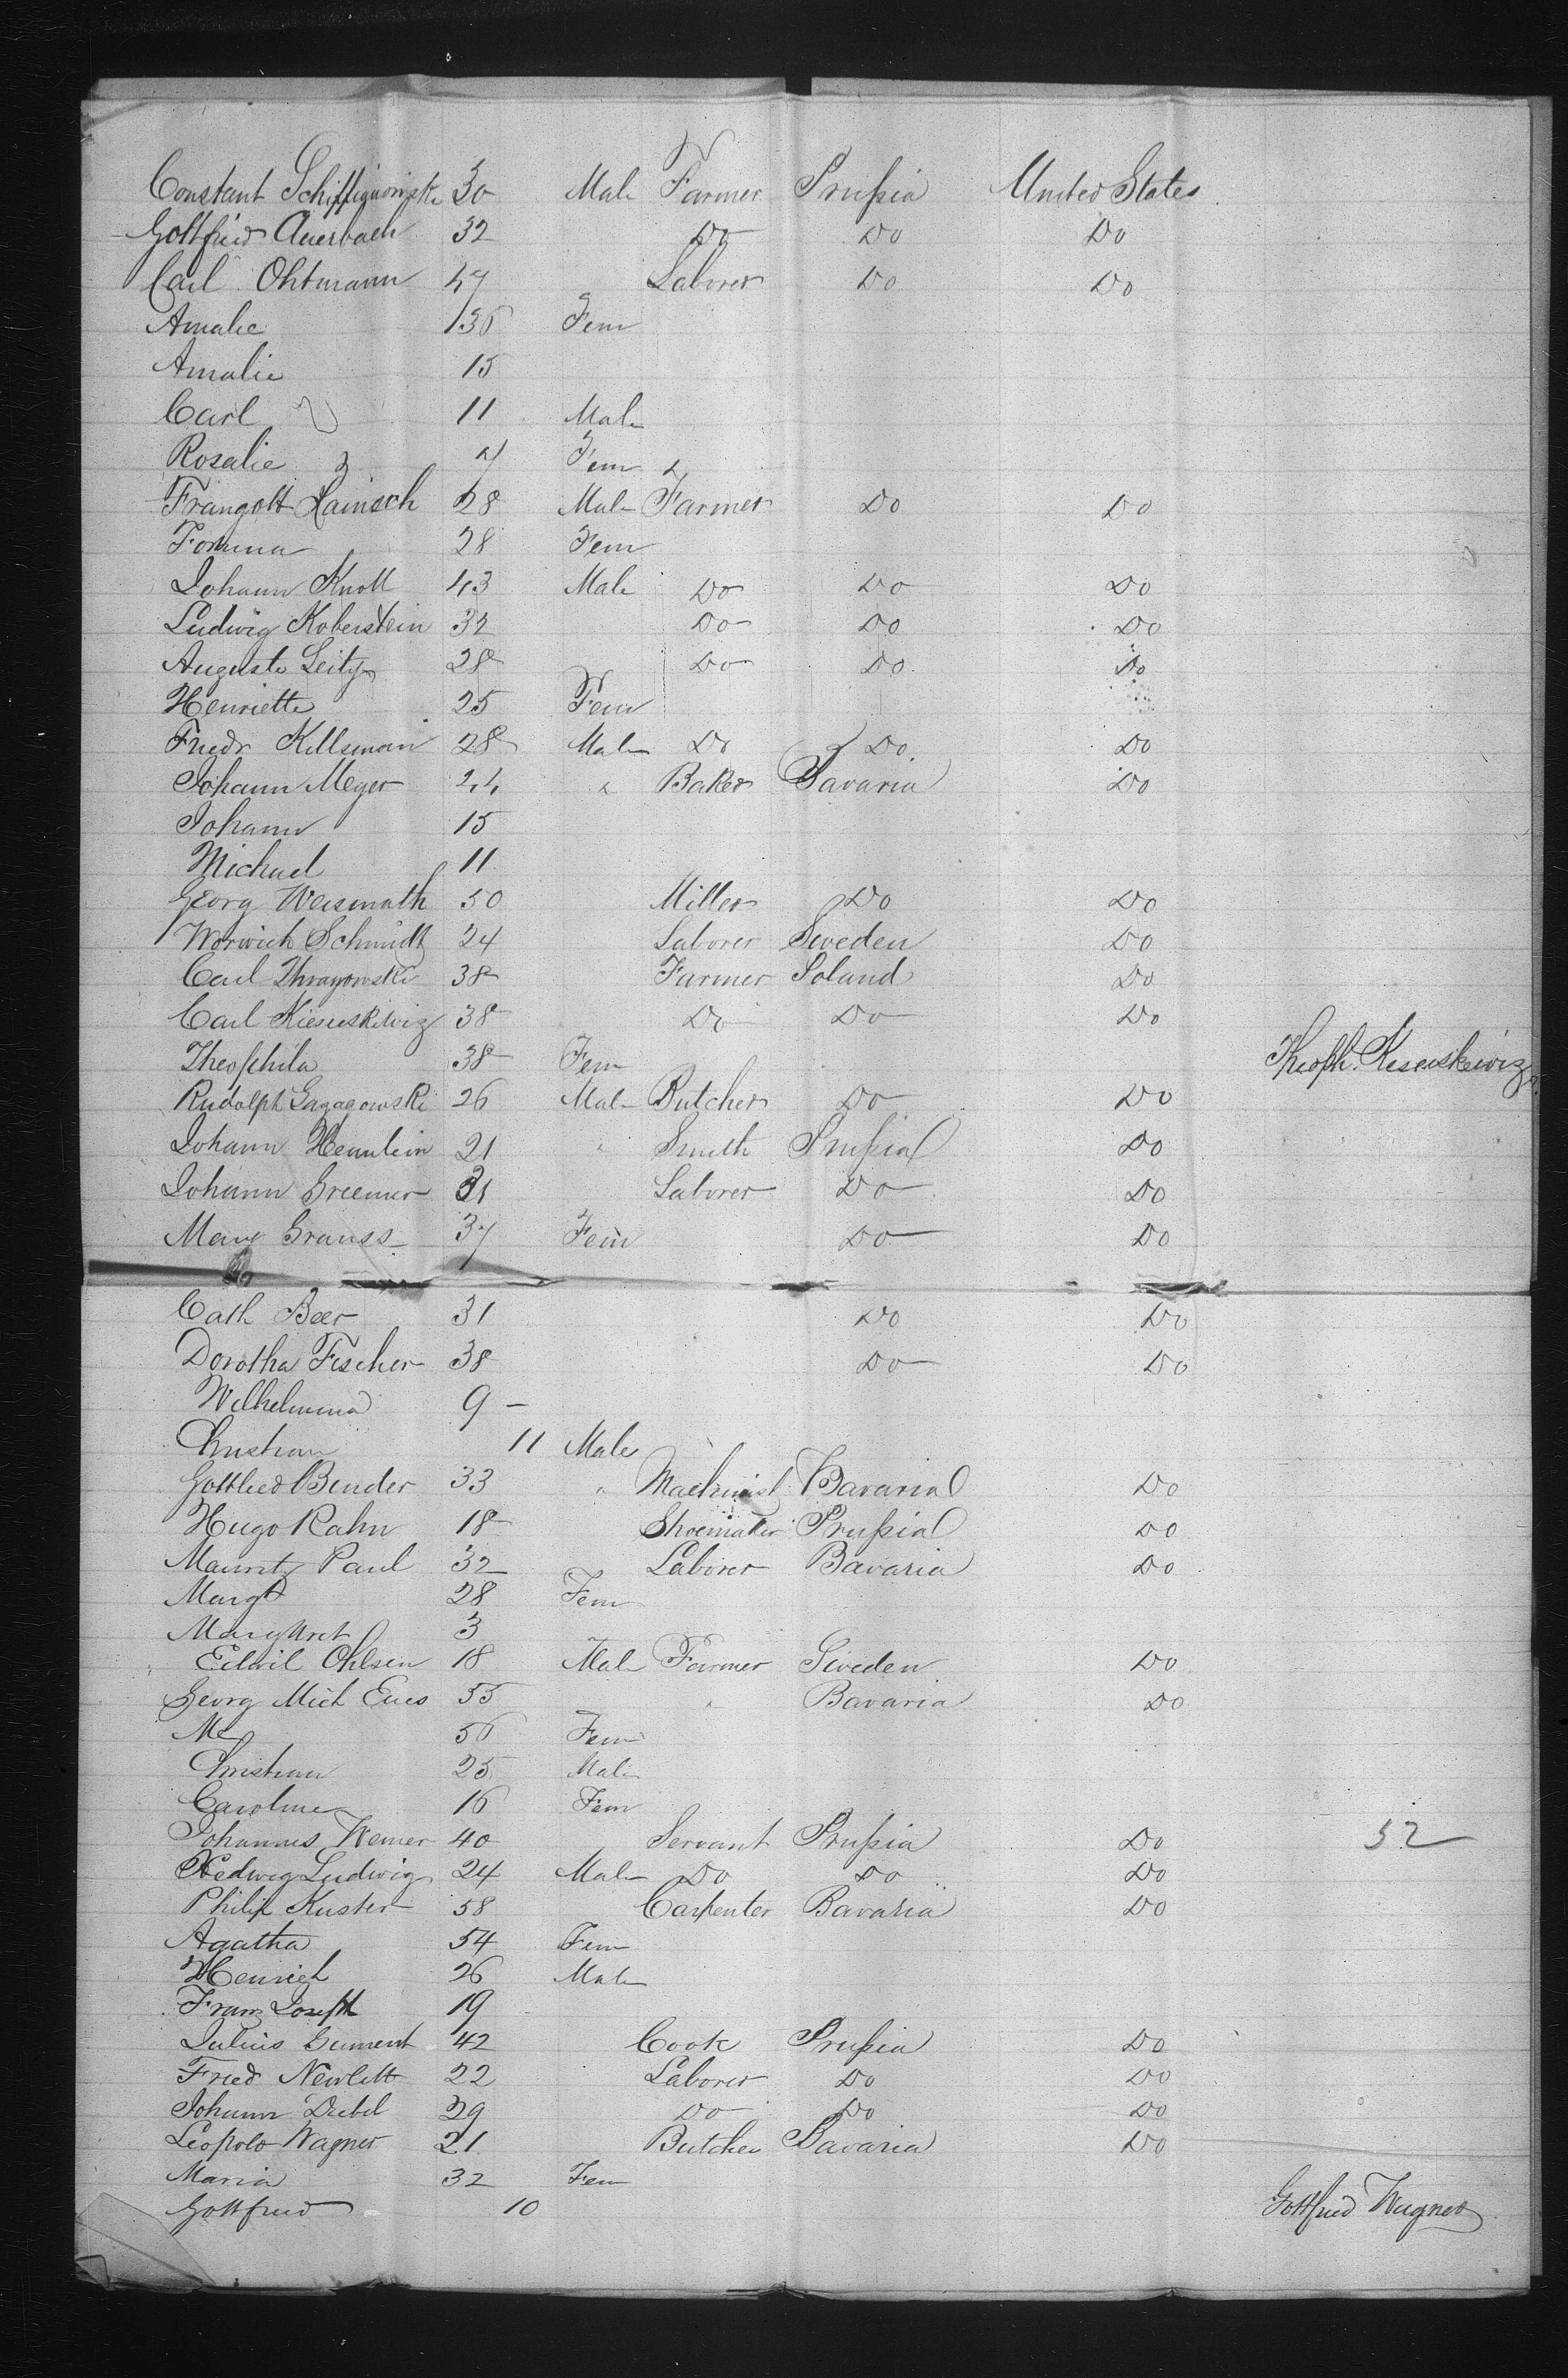 Constant 30 Male Farmer Prussia United States
Gottfried Auerbach 32 Do Do Do
Carl Ohtmann 47 Laborer Do Do
Amalie 36 Fem
Amalie 15
Carl 11 Male
Rosalie 7 Fem
Lainsch 28 Male Farmer Do Do
28 Fem
Johann Knoll 43 Male Do Do Do
Ludwig Koberstein 32 Do Do Do
Auguste 28 Do Do Do
Henriette 25 Fem
Friedr 28 Male Do Do Do
Johann Meyer 44 " Baker Bavaria Do
Johann 15
Michael 11
Georg 50 Miller Do Do
Schmidt 24 Laborer Sweden Do
Carl 38 Farmer Poland Do
Carl Kieseuskiwiz 38 Do Do Do
Theophila 38 Fem Theoph. Keseuskewiz
Rudolph 26 Male Butcher Do Do
Johann 21 " Smith Prussia Do
Johann 31 Laborer Do Do
Mary 37 Fem Do Do
Cath Beer 31 Do Do
Dorotha Fischer 38 Do Do
Wilhelmina 9 -
Christian 11 Male
Gottlied Bender 33 " Machinist Bavaria Do
Hugo Rahn 18 Shoemaker Prussia Do
Paul 32 Laborer Bavaria Do
Margt 28 Fem
Margret 3
Ohlsen 18 Male Farmer Sweden Do
Georg Mich 55 " Bavaria Do
56 Fem
Christian 25 Male
Caroline 16 Fem
Johannes Werner 40 Servant Prussia Do 52
Hedwig Ludwig 24 Male Do Do Do
Philip Kuster 58 Carpenter Bavaria Do
Agatha 54 Fem
Henrich 26 Male
Franz Joseph 19
Julius 42 Cook Prussia Do
Fried Newlitt 22 Laborer Do Do
Johann Diebel 29 Do Do Do
Leopold Wagner 21 Butcher Bavaria Do
Maria 32 Fem
Gottfried 10 Gottfried Wagner